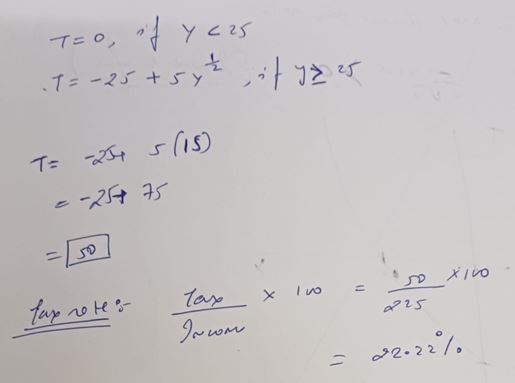 T=0, if Y < 25
.T = -25 + 5Y^½, if y ≥ 25
T= -25+ 5(15)
= -25+ 75
= 50
tax rate:- Tax/Income × 100 = 50/225 ×100
= 22.22%